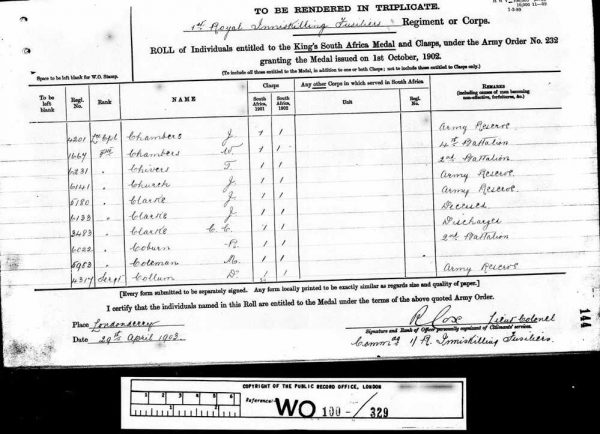 TO BE RENDERED IN TRIPLICATE.
1st Royal Inniskilling Fusiliers Regiment or Corps.
ROLL of Individuals entitled to the King's South Africa Medal and Clasps, under the Army Order No. 232
granting the Medal issued on 1st October, 1902.
(To include all those entitled to the Medal, in addition to one or both Clasps; not to include those entitled to Clasps only.)
Space to be left blank for W.O. Stamp.
To be left blank Regl. No. Rank NAME Clasps South Africa, 1901 South Africa, 1902 Any other Corps in which served in South Africa Unit Regl. No. REMARKS (including causes of men becoming non-effective, forfeitures, &c.)
4201 Lce Cpl Chambers J. 1 1 Army Reserve
1667 Pte Chambers W. 1 1 4th Battalion
6231 " Chivers T. 1 1 2nd Battalion
6141 " Church J. 1 1 Army Reserve
5180 " Clarke J. 1 1 Army Reserve
6133 " Clarke J. 1 1 Deceased
3483 " Clarke C. C. 1 1 Discharged
6022 " Coburn R. 1 1 2nd Battalion
5953 " Coleman A. 1 1
4317 Sergt Collum D. 1 1 Army Reserve
[Every form submitted to be separately signed. Any form locally printed to be exactly similar as regards size and quality of paper.]
I certify that the individuals named in this Roll are entitled to the Medal under the terms of the above quoted Army Order.
Place Londonderry
Date 29th April 1903.
R Cox Lieut Colonel
Signature and Rank of Officer personally cognisant of Claimants' services.
Commdg 1/R. Inniskilling Fusiliers.
144
COPYRIGHT OF THE PUBLIC RECORD OFFICE, LONDON
1 2 3 4 5 6
1 2
Reference:-
WO 100-/329